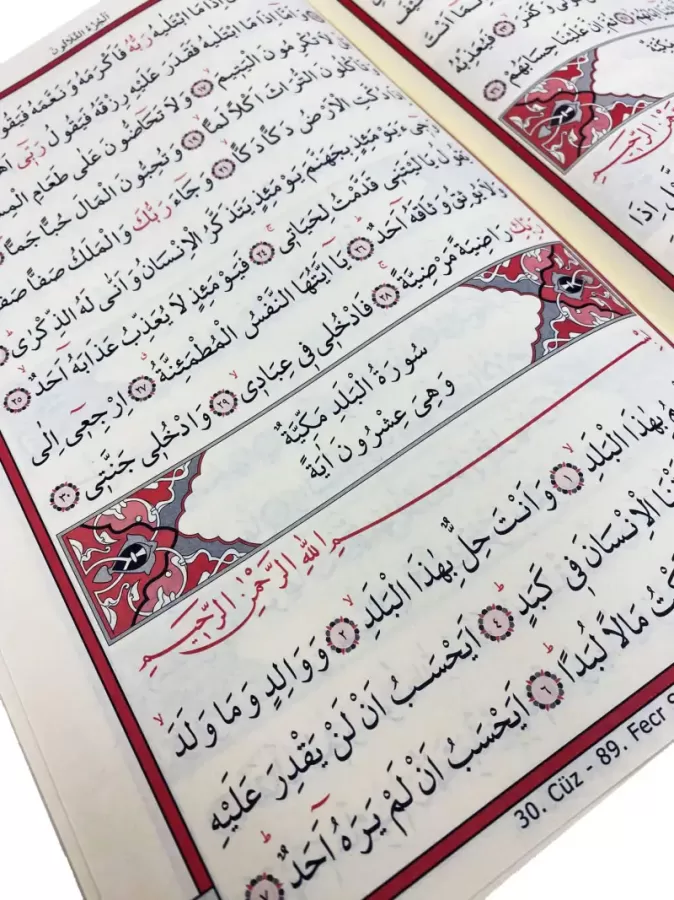 انما انت
تَوَلّٰى وَكَفَرَ ﴿٢٣﴾ فَيُعَذِّبُهُ
ثُمَّ اِنَّ عَلَيْنَا حِسَابَهُمْ ﴿٢٦﴾
مَكِّيَّةٌ
الرَّحِيمِ
اِذَا
اَلْجُزْءُ الثَّلَاثُونَ
اِذَا مَا ابْتَلٰيهُ رَبُّهُ فَاَكْرَمَهُ وَنَعَّمَهُ
وَاَمَّٓا اِذَا مَا ابْتَلٰيهُ فَقَدَرَ عَلَيْهِ رِزْقَهُ فَيَقُولُ رَبّٖٓى
لَا تُكْرِمُونَ الْيَتٖيمَ ﴿١٧﴾ وَلَا تَحَٓاضُّونَ عَلٰى طَعَامِ
التُّرَاثَ اَكْلًا لَمًّا ﴿١٩﴾ وَتُحِبُّونَ الْمَالَ حُبًّا جَمًّا
دُكَّتِ الْاَرْضُ دَكًّا دَكًّا ﴿٢١﴾ وَجَٓاءَ رَبُّكَ وَالْمَلَكُ صَفًّا صَفًّا
يَوْمَئِذٍ بِجَهَنَّمَ يَوْمَئِذٍ يَتَذَكَّرُ الْاِنْسَانُ وَاَنّٰى لَهُ الذِّكْرٰى
يَا لَيْتَنٖى قَدَّمْتُ لِحَيَاتٖى ﴿٢٤﴾ فَيَوْمَئِذٍ لَا يُعَذِّبُ عَذَابَهُٓ اَحَدٌ ﴿٢٥﴾
وَلَا يُوثِقُ وَثَاقَهُٓ اَحَدٌ ﴿٢٦﴾ يَٓا اَيَّتُهَا النَّفْسُ الْمُطْمَئِنَّةُ ﴿٢٧﴾ اِرْجِعٖٓى اِلٰى
رَبِّكِ رَاضِيَةً مَرْضِيَّةً ﴿٢٨﴾ فَادْخُلٖى فٖى عِبَادٖى ﴿٢٩﴾ وَادْخُلٖى جَنَّتٖى ﴿٣٠﴾
سُورَةُ الْبَلَدِ مَكِّيَّةٌ
وَهِيَ عِشْرُونَ اٰيَةً
اللّٰهِ الرَّحْمٰنِ الرَّحٖيمِ
بِهٰذَا الْبَلَدِ ﴿١﴾ وَاَنْتَ حِلٌّ بِهٰذَا الْبَلَدِ ﴿٢﴾ وَوَالِدٍ وَمَا وَلَدَ
الْاِنْسَانَ فٖى كَبَدٍ ﴿٤﴾ اَيَحْسَبُ اَنْ لَنْ يَقْدِرَ عَلَيْهِ
مَالًا لُبَدًا ﴿٦﴾ اَيَحْسَبُ اَنْ لَمْ يَرَهُٓ اَحَدٌ ﴿٧﴾
30. Cüz - 89. Fecr